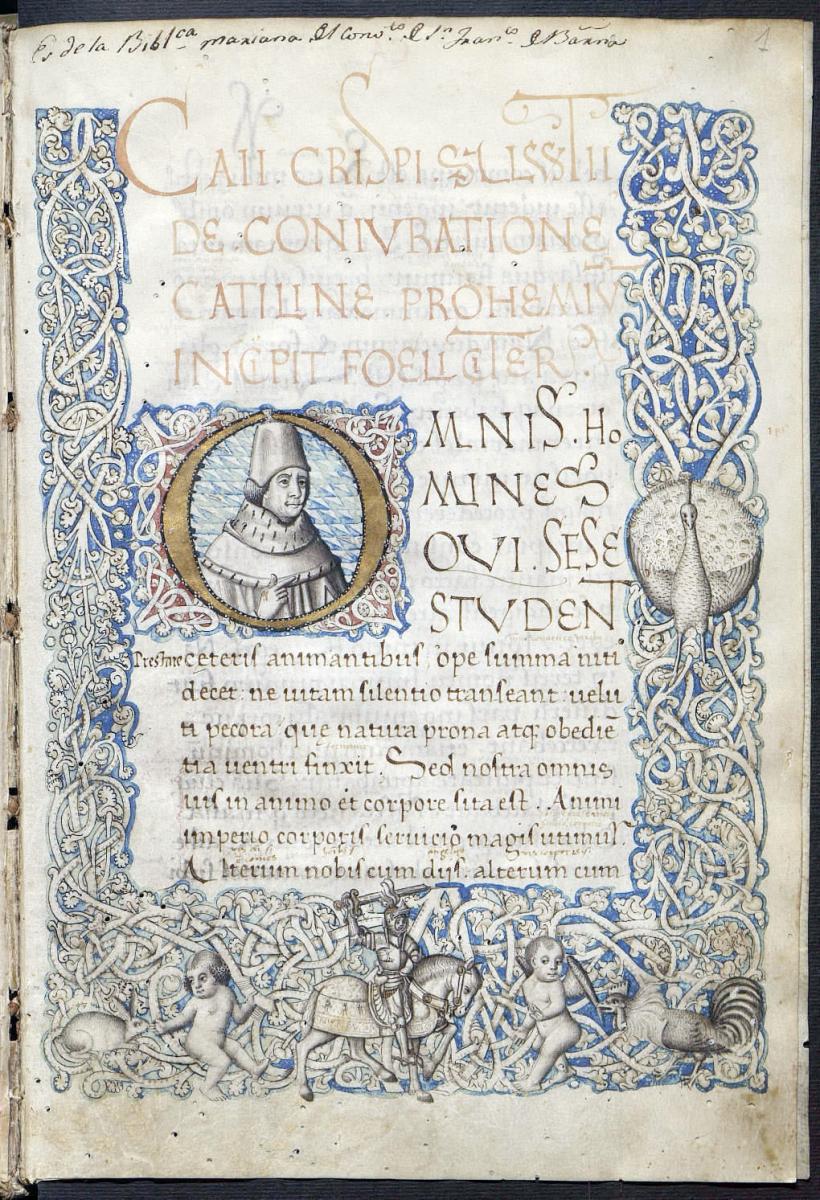 Es de la Bibl.ca mariana del Conv.to de S.n Fran.co de Barna
1
CAII. CRISPI SALLVSTII
DE CONIVRATIONE
CATILINE PROHEMIV
INCIPIT FOELICITER.
OMNIS. HO
MINES
QVI. SESE
STVDENT
Prestare ceteris animantibus, ope summa niti
decet: ne uitam silentio transeant: uelu
ti pecora que natura prona atq; obediē
tia uentri finxit. Sed nostra omnis
uis in animo et corpore sita est. Animi
imperio corporis seruicio magis utimur.
Alterum nobis cum diis. alterum cum